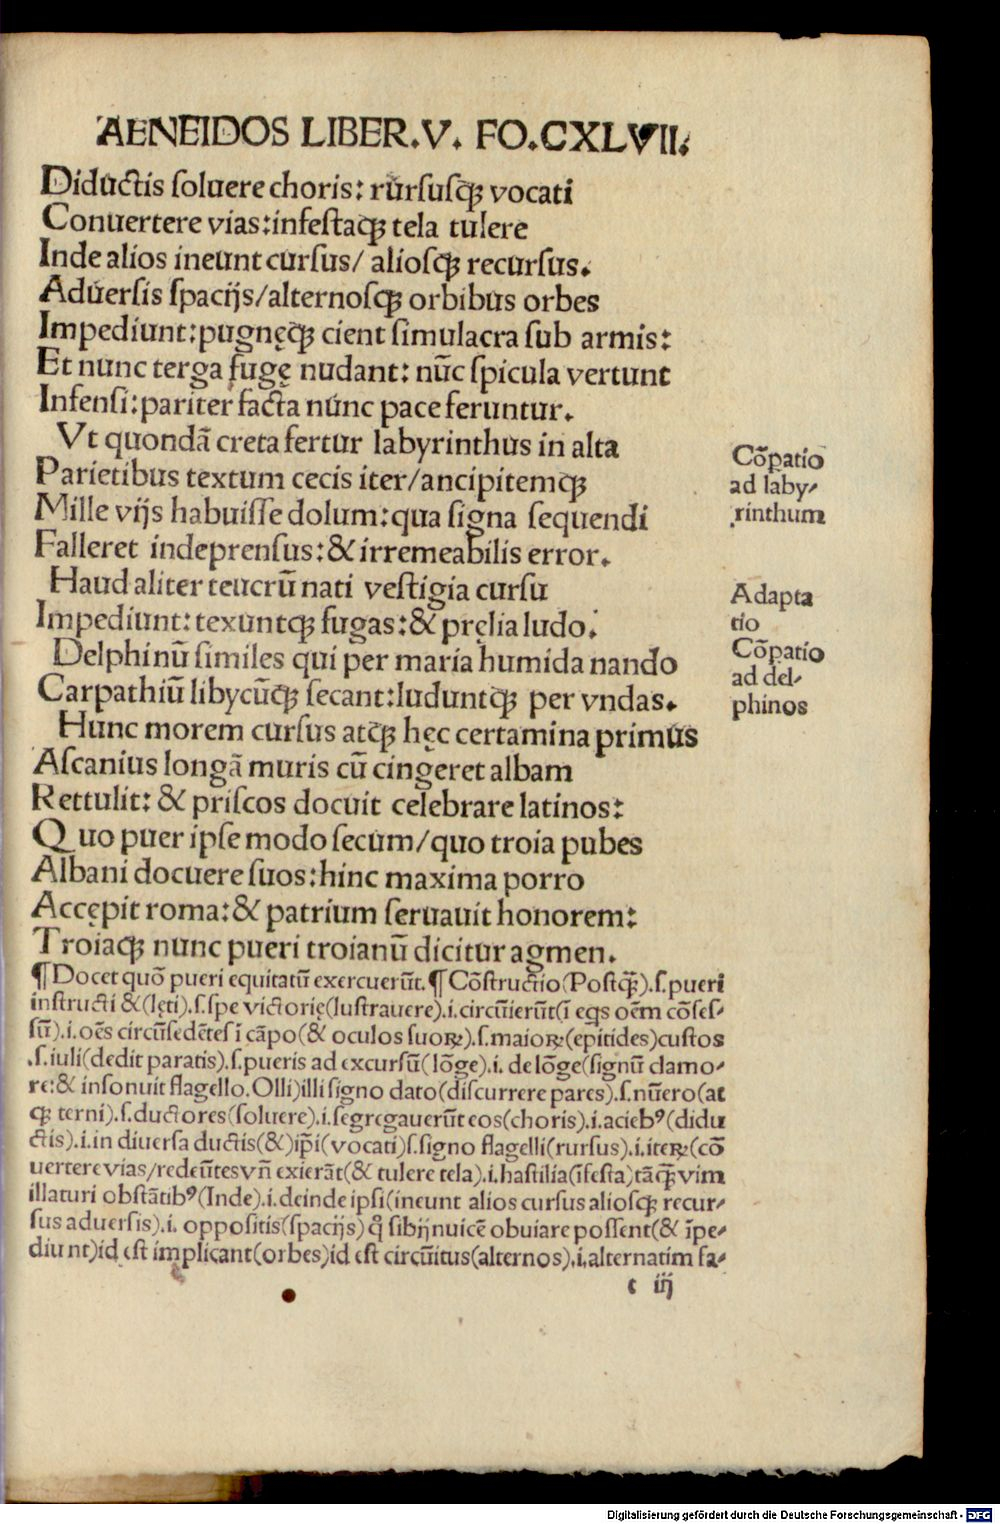 AENEIDOS LIBER.V. FO.CXLVII.
Diductis ſoluere choris: rurſuſqꝫ vocati
Conuertere vias:infeſtaqꝫ tela tulere
Inde alios ineunt curſus/ alioſqꝫ recurſus.
Aduerſis ſpacijs/alternoſqꝫ orbibus orbes
Impediunt:pugnęqꝫ cient ſimulacra ſub armis:
Et nunc terga fugę nudant: nūc ſpicula vertunt
Infenſi:pariter facta nunc pace feruntur.
Vt quondā creta fertur labyrinthus in alta
Parietibus textum cecis iter/ancipitemqꝫ
Mille vijs habuiſſe dolum:qua ſigna ſequendi
Falleret indeprenſus:& irremeabilis error.
Haud aliter teucrū nati veſtigia curſu
Impediunt:texuntqꝫ fugas:& pręlia ludo.
Delphinū ſimiles qui per maria humida nando
Carpathiū libycūqꝫ ſecant:luduntqꝫ per vndas.
Hunc morem curſus atqꝫ hęc certamina primus
Aſcanius longā muris cū cingeret albam
Rettulit: & priſcos docuit celebrare latinos:
Quo puer ipſe modo ſecum/quo troia pubes
Albani docuere ſuos:hinc maxima porro
Accępit roma:& patrium ſeruauit honorem:
Troiaqꝫ nunc pueri troianū dicitur agmen.
Cōpatio
ad laby⸗
rinthum
Adapta
tio
Cōpatio
ad del⸗
phinos
¶Docet quō pueri equitatū exercuerūt.¶Cōſtructio(Poſtqꝫ̄).ſ.pueri
inſtructi &(lęti).ſ.ſpe victorię(luſtrauere).i.circūierūt(ī eqs oēm cōſeſ⸗
ſū).i.oēs circūſedētes ī cāpo(& oculos ſuoꝝ).ſ.maioꝝ(epītides)cuſtos
.ſ.iuli(dedit paratis).ſ.pueris ad excurſū(lōge).i. de lōge(ſignū clamo⸗
re:& inſonuit flagello.Olli)illi ſigno dato(diſcurrere pares).ſ.nūero(at
qꝫ terni).ſ.ductores(ſoluere).i.ſegregauerūt eos(choris).i.aciebꝰ(didu
ctis).i.in diuerſa ductis(&)ip̄i(vocati)ſ.ſigno flagelli(rurſus).i.iteꝝ(cō
uertere vias/redeūtes vn̄ exierāt(& tulere tela).i.haſtilia(īfeſta)tāqꝫ̄ vim
illaturi obſtātibꝰ(Inde).i.deinde ipſi(ineunt alios curſus alioſqꝫ recur⸗
ſus aduerſis).i. oppoſitis(ſpacijs) q̄ ſibijnuicē obuiare poſſent(& īpe⸗
diunt)id eſt implicant(orbes)id eſt circūitus(alternos).i.alternatim fa⸗
c iij
Digitalisierung gefördert durch die Deutsche Forschungsgemeinschaft - DFG